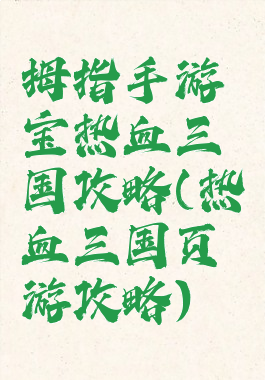 拇指手游
宝热血三
国攻略(热
血三国页
游攻略)